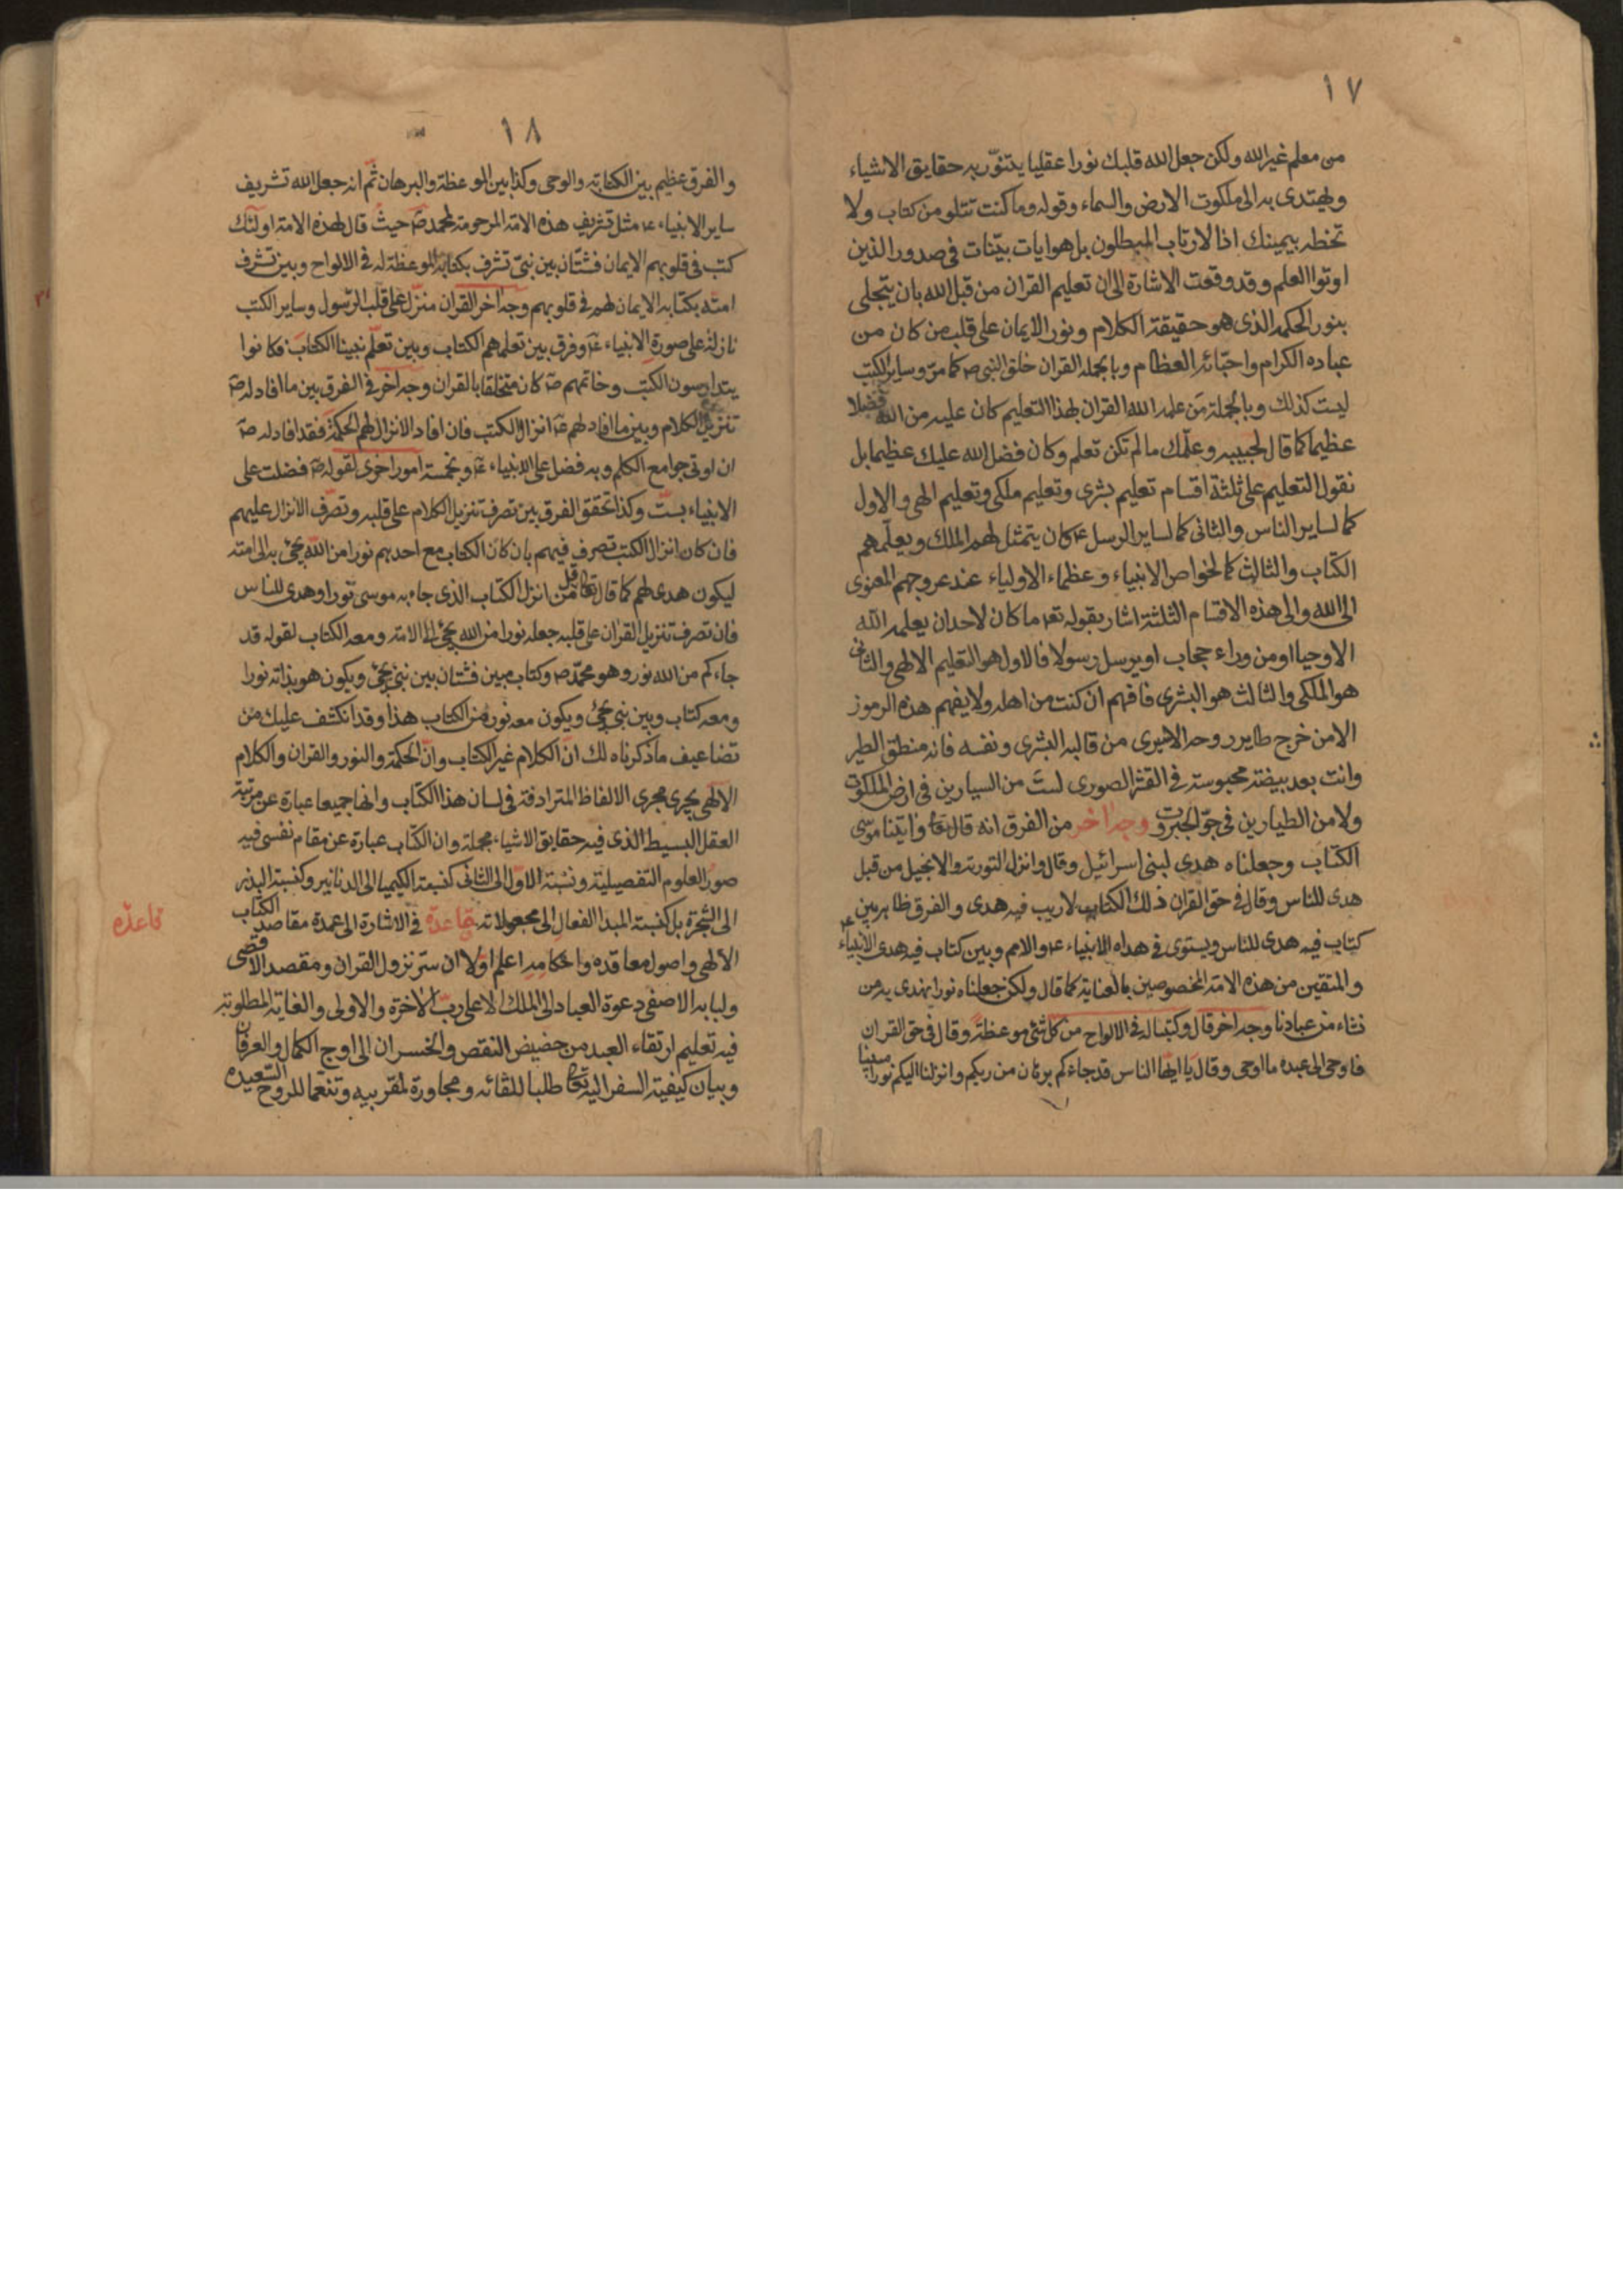 ١٧
من معلم غير الله ولكن جعل الله قلبك نورا عقليا يتنوّر به حقايق الاشياء
ويهتدى به الى ملكوت الارض والسماء وقوله وما كنت تتلو من كتاب ولا
تخطه بيمينك اذا لارتاب المبطلون بل هو ايات بيّنات فى صدور الذين
اوتوا العلم وقد وقعت الاشارة الى ان تعليم القران من قبل الله بان يتجلى
بنور الحكمه الذى هو حقيقة الكلام ونور الايمان على قلب من كان من
عباده الكرام واحبّائه العظام وبا بجمله القران خلق النبى ص كما مرّ وساير الكتب
ليست كذلك وبالجملة من علمه الله القران بهذا التعليم كان عليه من الله فضلا
عظيما كما قال لحبيبه وعلّمك ما لم تكن تعلم وكان فضل الله عليك عظيما بل
نقول التعليم على ثلثة اقسام تعليم بشرى وتعليم ملكى وتعليم الهى والاول
كما لساير الناس والثانى كما لساير الرسل ع كان يتمثل لهم الملك ويعلّمهم
الكتاب والثالث كما لخواص الانبياء وعظماء الاولياء عند عروجهم المعنوى
الى الله والى هذه الاقسام الثلثة اشار بقوله تع ما كان لاحد ان يعلمه الله
الا وحيا او من وراء حجاب او يرسل رسولا فالاول هو التعليم الالهى والثانى
هو الملكى والثالث هو البشرى فافهم ان كنت من اهله ولا يفهم هذه الرموز
الا من خرج طاير روحه الاثيرى من قالبه البشرى ونفسه فانه منطق الطير
وانت بعد بيضته محبوسته فى القشر الصورى لست من السيارين فى ارض الملكوت
ولا من الطيارين فى جوّ الجبروت وجه اخر من الفرق انه قال تعا واتينا موسى
الكتاب وجعلناه هدى لبنى اسرائيل وقال وانزل التورته والانجيل من قبل
هدى للناس وقال فى حق القران ذلك الكتاب لا ريب فيه هدى والفرق ظاهر بين
كتاب فيه هدى للناس ويستوى فى هداه الانبياء ع والامم وبين كتاب فيه هدى الانبياء ع
والمتقين من هذه الامته المخصوصين بالعنايته كما قال ولكن جعلناه نورا نهدى به من
نشاء من عبادنا وجه اخر قال وكتبنا له فى الالواح من كل شئ موعظة وقال فى حق القران
فاوحى الى عبده ما اوحى وقال يا ايها الناس قد جاءكم برهان من ربكم وانزلنا اليكم نورا مبينا
١٨
والفرق عظيم بين الكتابته والوحى وكذا بين الموعظة والبرهان ثم انه جعل الله تشريف
ساير الانبياء ع مثل تشريف هذه الامته المرحومة لمحمد ص حيث قال لهذه الامته اولئك
كتب فى قلوبهم الايمان فشتان بين نبىّ تشرف بكتابه الموعظة له فى الالواح وبين تشرف
امته بكتابه الايمان لهم فى قلوبهم وجه اخر القران منزل على قلب الرسول وساير الكتب
نازلة على صورة الانبياء ع وفرق بين تعلمهم الكتاب وبين تعلّم نبينا الكتاب فكانوا
يتدارسون الكتب وخاتمهم ص كان متخلقا بالقران وجه اخر فى الفرق بين ما افادله ص
تنزيل الكلام وبين ما افاد لهم ع انزال الكتب فان افاد الانزال لهم الحكمة فقد افادله ص
ان اوتى جوامع الكلم وبه فضل على الانبياء ع وبخمسة امور اخرى لقوله ص فضلت على
الانبياء بستّ وكذا تحقق الفرق بين تصرف تنزيل الكلام على قلبه وتصرّف الانزال عليهم
فان كان انزال الكتب تصرف فيهم بان كان الكتاب مع احدهم نورا من الله يجئ به الى امته
ليكون هدى لهم كما قال تعا قل من انزل الكتاب الذى جاء به موسى نورا وهدى للناس
فان تصرف تنزيل القران على قلبه جعله نورا من الله يجئ الى الامته ومعه الكتاب لقوله قد
جاءكم من الله نور وهو محمّد ص وكتاب مبين فشتان بين نبى يجئ ويكون هو بذاته نورا
ومعه كتاب وبين نبى يجئ ويكون معه نور من الكتاب هذا وقد انكشف عليك من
تضاعيف ما ذكرناه لك ان الكلام غير الكتاب وانّ الحكمة والنور والقران والكلام
الالهى يجرى مجرى الالفاظ المترادفة فى لسان هذا الكتاب وانها جميعا عبارة عن مرتبة
العقل البسيط الذى فيه حقايق الاشياء مجملة وان الكتاب عبارة عن مقام نفسى فيه
صور العلوم التفصيليّة ونسبته الاول الى الثانى كنسبته الكيميا الى الدنانير وكنسبة البذر
الى الشجرة بل كنسبته المبدا الفعال الى مجعولاته قاعدة فى الاشارة الى عمدة مقاصد الكتاب
الالهى واصول معاقده واحكامه اعلم اوّلا ان سرّ نزول القران ومقصد الاقصى
ولبابه الاصفى دعوة العباد الى الملك الاعلى ربّ الاخرة والاولى والغاية المطلوبة
فيه تعليم ارتقاء العبد من حضيض النقص والخسران الى اوج الكمال والعرفان
وبيان كيفيته السفر اليه تعا طلبا للقائه ومجاورة لمقربيه وتنعما للروح السعيده
قاعدّه